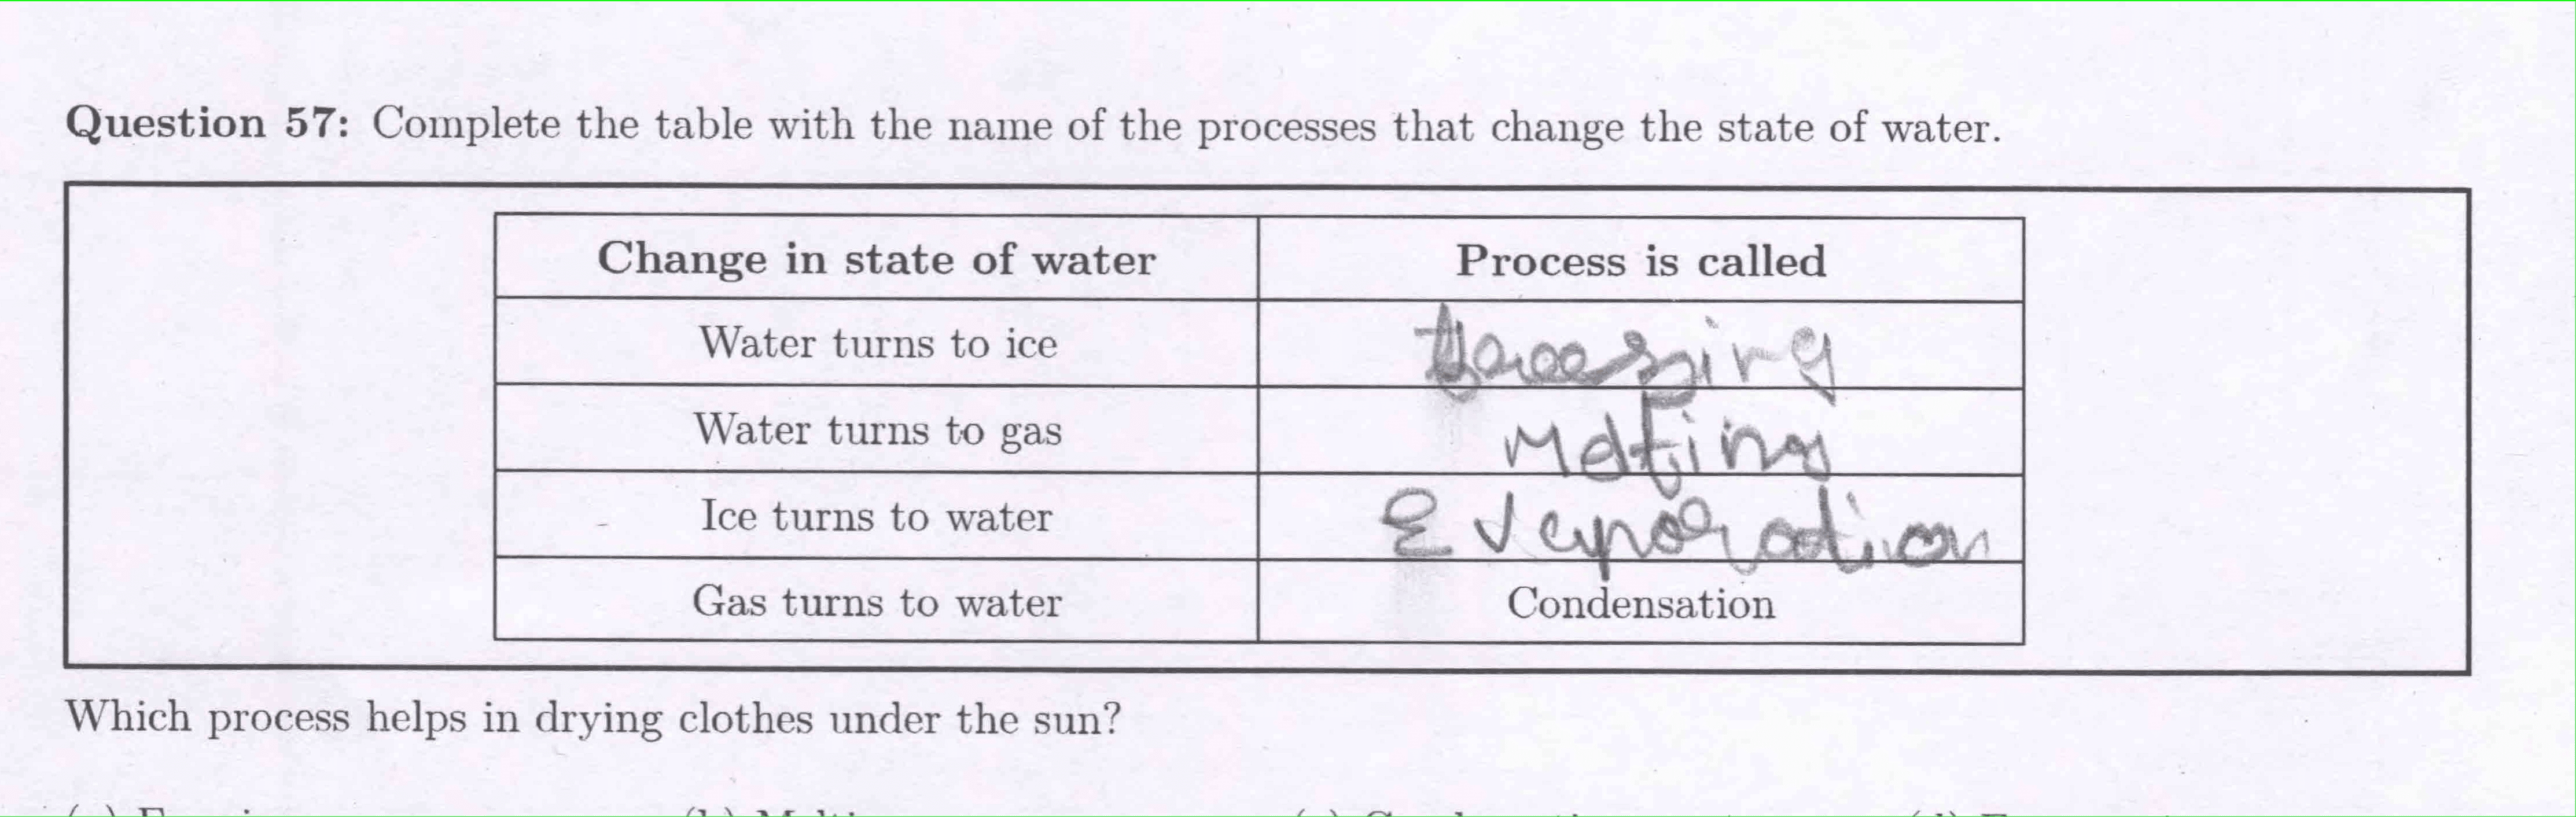 Question 57: Complete the table with the name of the processes that change the state of water.
Change in state of water Process is called
Water turns to ice
Water turns to gas Melting
Ice turns to water Evaporation
Gas turns to water Condensation
Which process helps in drying clothes under the sun?